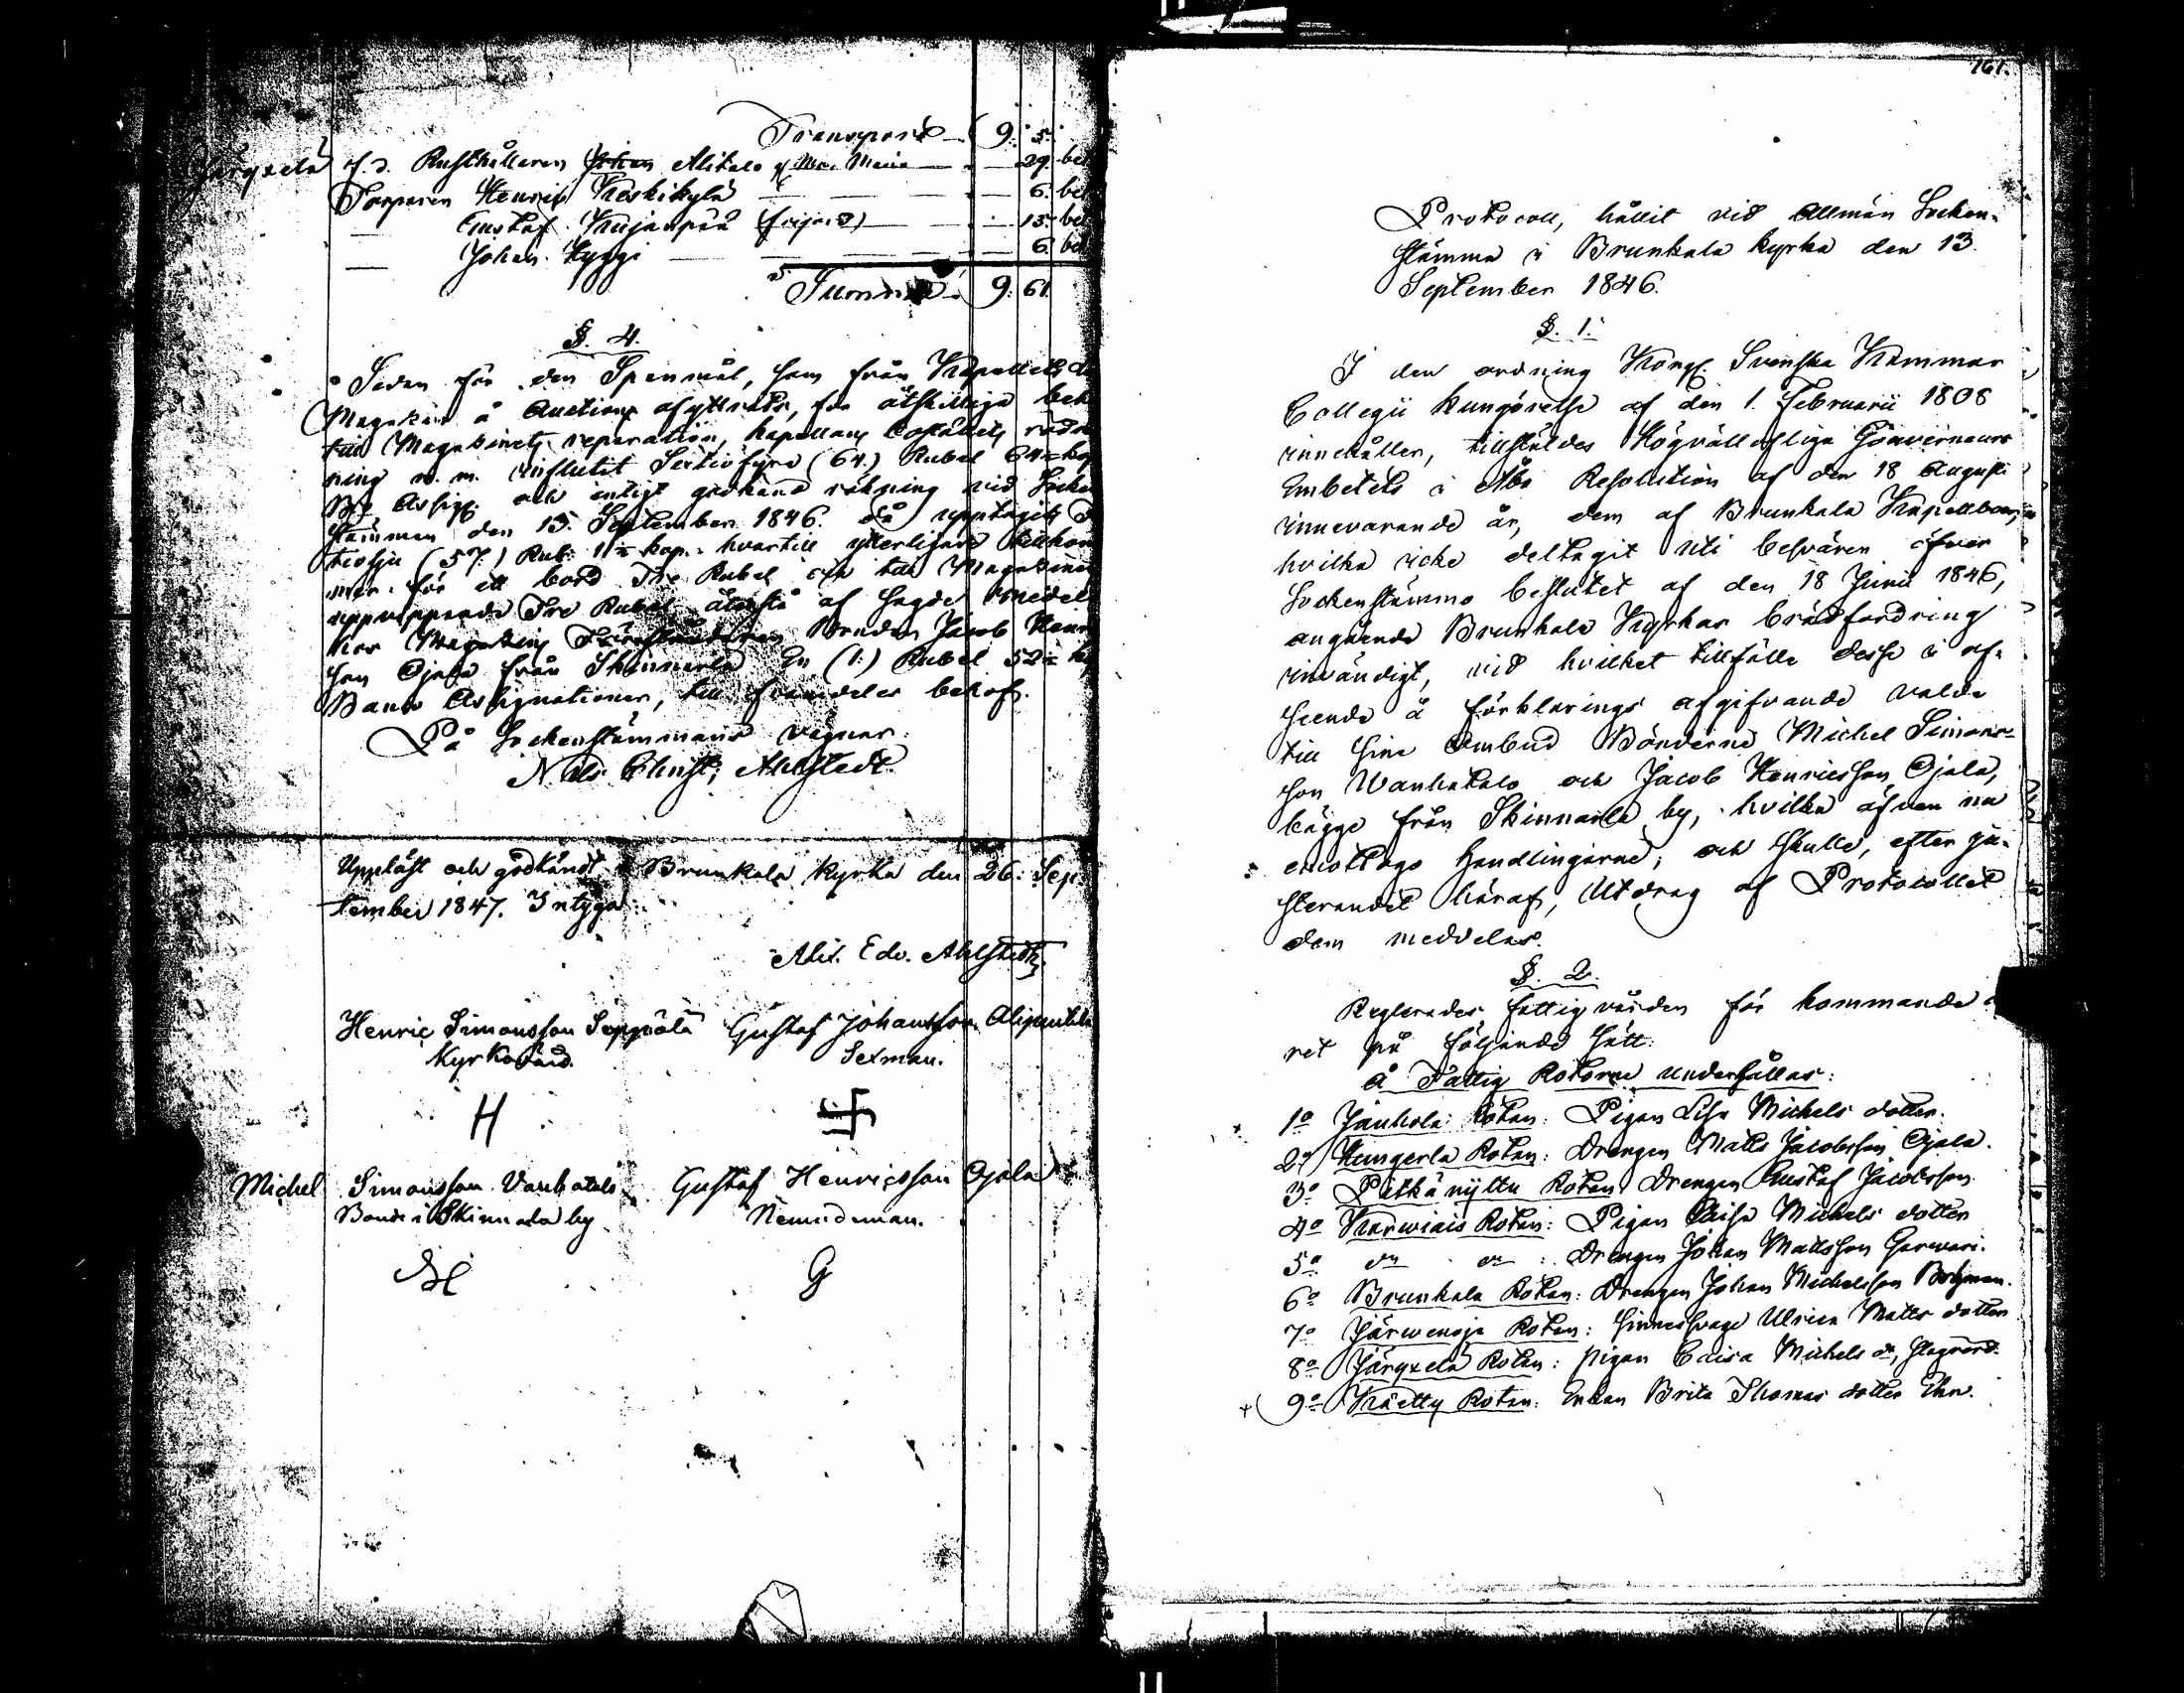 Transport 9: 5.
Järvxelä f. d. Rusthållaren Johan Alitalo Maria 29. bet
Torparen Henric Koskikylä 6. bet
Gustaf Kujanpää 15. bet
Johan Kyggi 6. bet
Summa 9: 61.
§. 4.
Sedan för den Spanmål, som från Kapellets
Magasin å Auction afyttrats, för åtskilliga
till Magasinets reparation, Kapellans
ning m. m. influtit Sextiofyra (64.) Rubel 64
B:co Assign. och enligt godkänd räkning vid Socken
stämman den 13. September 1846. då upptagits
tiosju (57.) Rub: 11 kop. hvartill ytterligare tillkom
mer för ett bord Tre Rubel till Magasinets
Tre Rubel återstå af sagde medel
hos Magasins Bonden Jacob Henrics
son Ojala från Skinnarla En (1.) Rubel 52
Banco Assignationer, till framdeles behof.
På Sockenstämmans vägnar:
Nils Christ; Ahlstedt.
Uppläst och godkändt i Brunkala Kyrka den 26. Sep-
tember 1847. Intyga:
Alex. Edv. Ahlstedt
Henric Simonsson Seppälä Gustaf Johansson
Kyrkovärd. Sexman.
H
Michel Simonsson Vanhatalo Gustaf Henricsson Ojala
Bonde i Skinnarla by Nämndeman.
G
161.
Protocoll, hållit vid Allmän Socken-
stämma i Brunkala kyrka den 13.
September 1846.
§. 1.
I den ordning Kongl. Svenska Kammar
Collegii Kungörelse af den 1. Februarii 1808
innehåller, tillstäldes Högvällofliga Gouverneurs
Embetets i Åbo Resolution af den 18 Augusti
innevarande år, dem af Brunkala Kapellboer,
hvilka icke deltagit uti besvären öfver
Sockenstämmo beslutet af den 18 Junii 1846,
angående Brunkala Kyrkas brädfordring
invändigt, vid hvilket tillfälle desse i af-
seende å förklarings afgifvande valde
till sine Ombud Bönderne Michel Simons-
son Wanhatalo och Jacob Henricsson Ojala,
bägge från Skinnarla by, hvilka äfven nu
emottago Handlingarne; och skulle, efter ju-
sterandet häraf, Utdrag af Protocollet
dem meddelas.
§. 2.
Reglerades fattigvården för kommande å
ret på följande sätt:
å Fattig Rotorne underhållas:
1o Jauhola Rotan: Pigan Lisa Michels dotter.
2o Kungerla Rotan: Drengen Matts Jacobsson Ojala.
3o Pitkäniittu Rotan Drengen Gustaf Jacobsson
4o Karwiais Rotan: Pigan Caisa Michels dotter
5o do do: Drengen Johan Mattsson Garwari.
6o Brunkala Rotan: Drengen Johan Michelsson
7o Järwenoja Rotan: Sinnessvage Ulrica Matts dotter
8o Järvxelä Rotan: pigan Caisa Michels dr,
9o Kräetty Rotan: Enkan Brita Thomas dotter